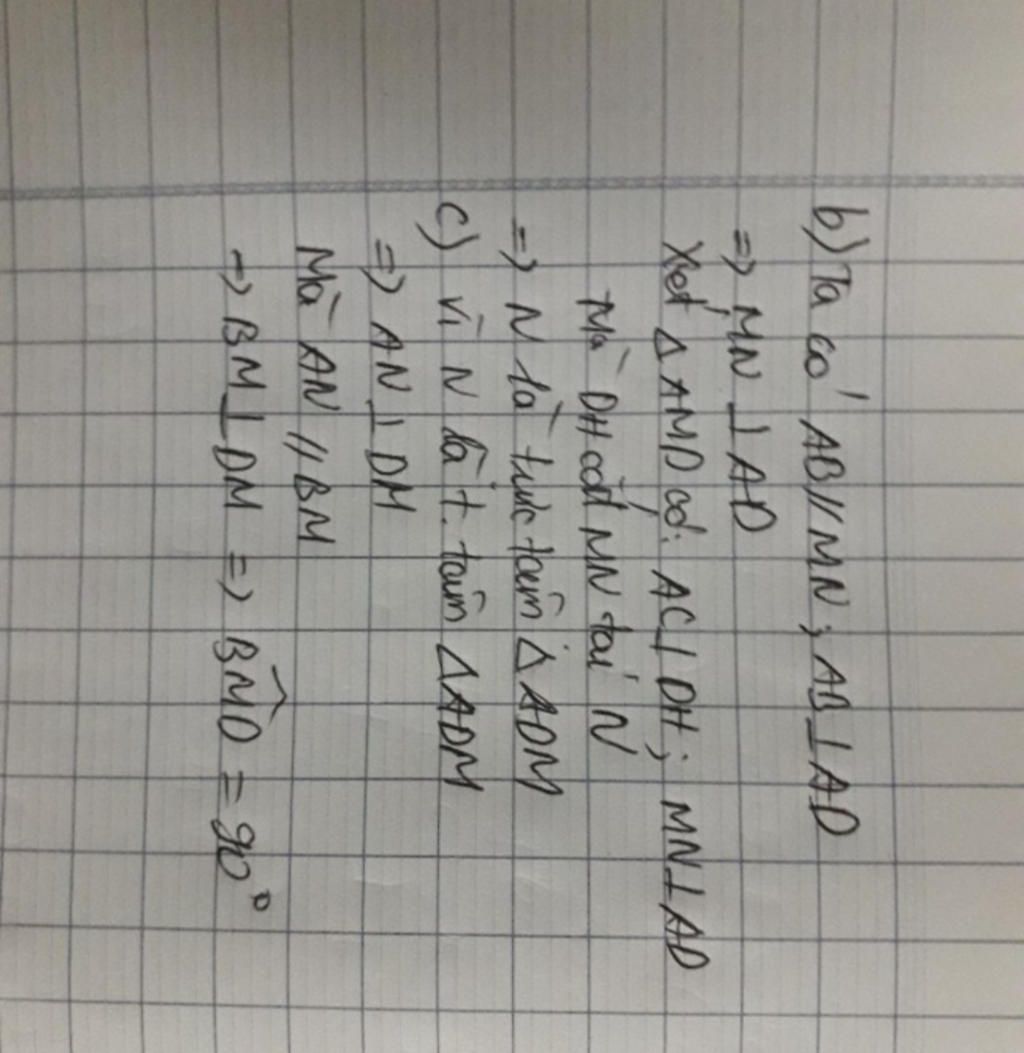 b) Ta có AB // MN ; AB ⊥ AD
=> MN ⊥ AD
Xét Δ AMD có: AC ⊥ DH ; MN ⊥ AD
Mà DH cắt MN tại N
=> N là trực tâm Δ ADM
c) Vì N là t. tâm Δ ADM
=> AN ⊥ DM
Mà AN // BM
-> BM ⊥ DM => BMD̂ = 90°